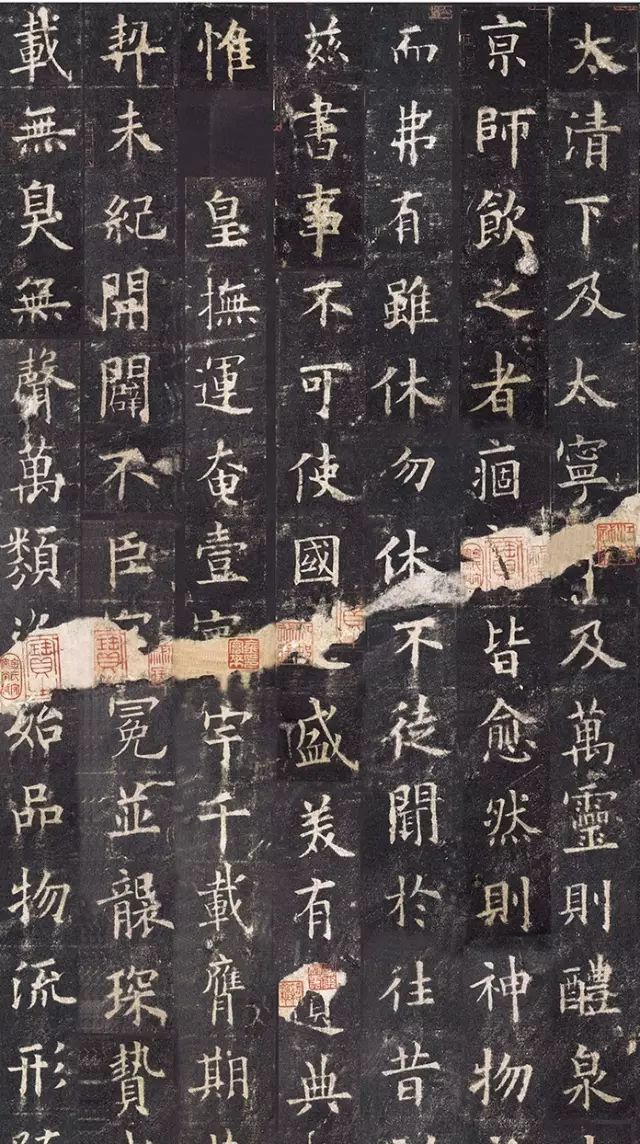 太清下及太寧及萬靈則醴泉
京師飲之者痼皆愈然則神物
而弗有雖休勿休不徒聞於往昔
茲書事不可使國盛美有遺典
惟皇撫運奄壹寰宇千載膺期
契未紀開闢不臣冠冕並襲琛贄
載無臭無聲萬類始品物流形